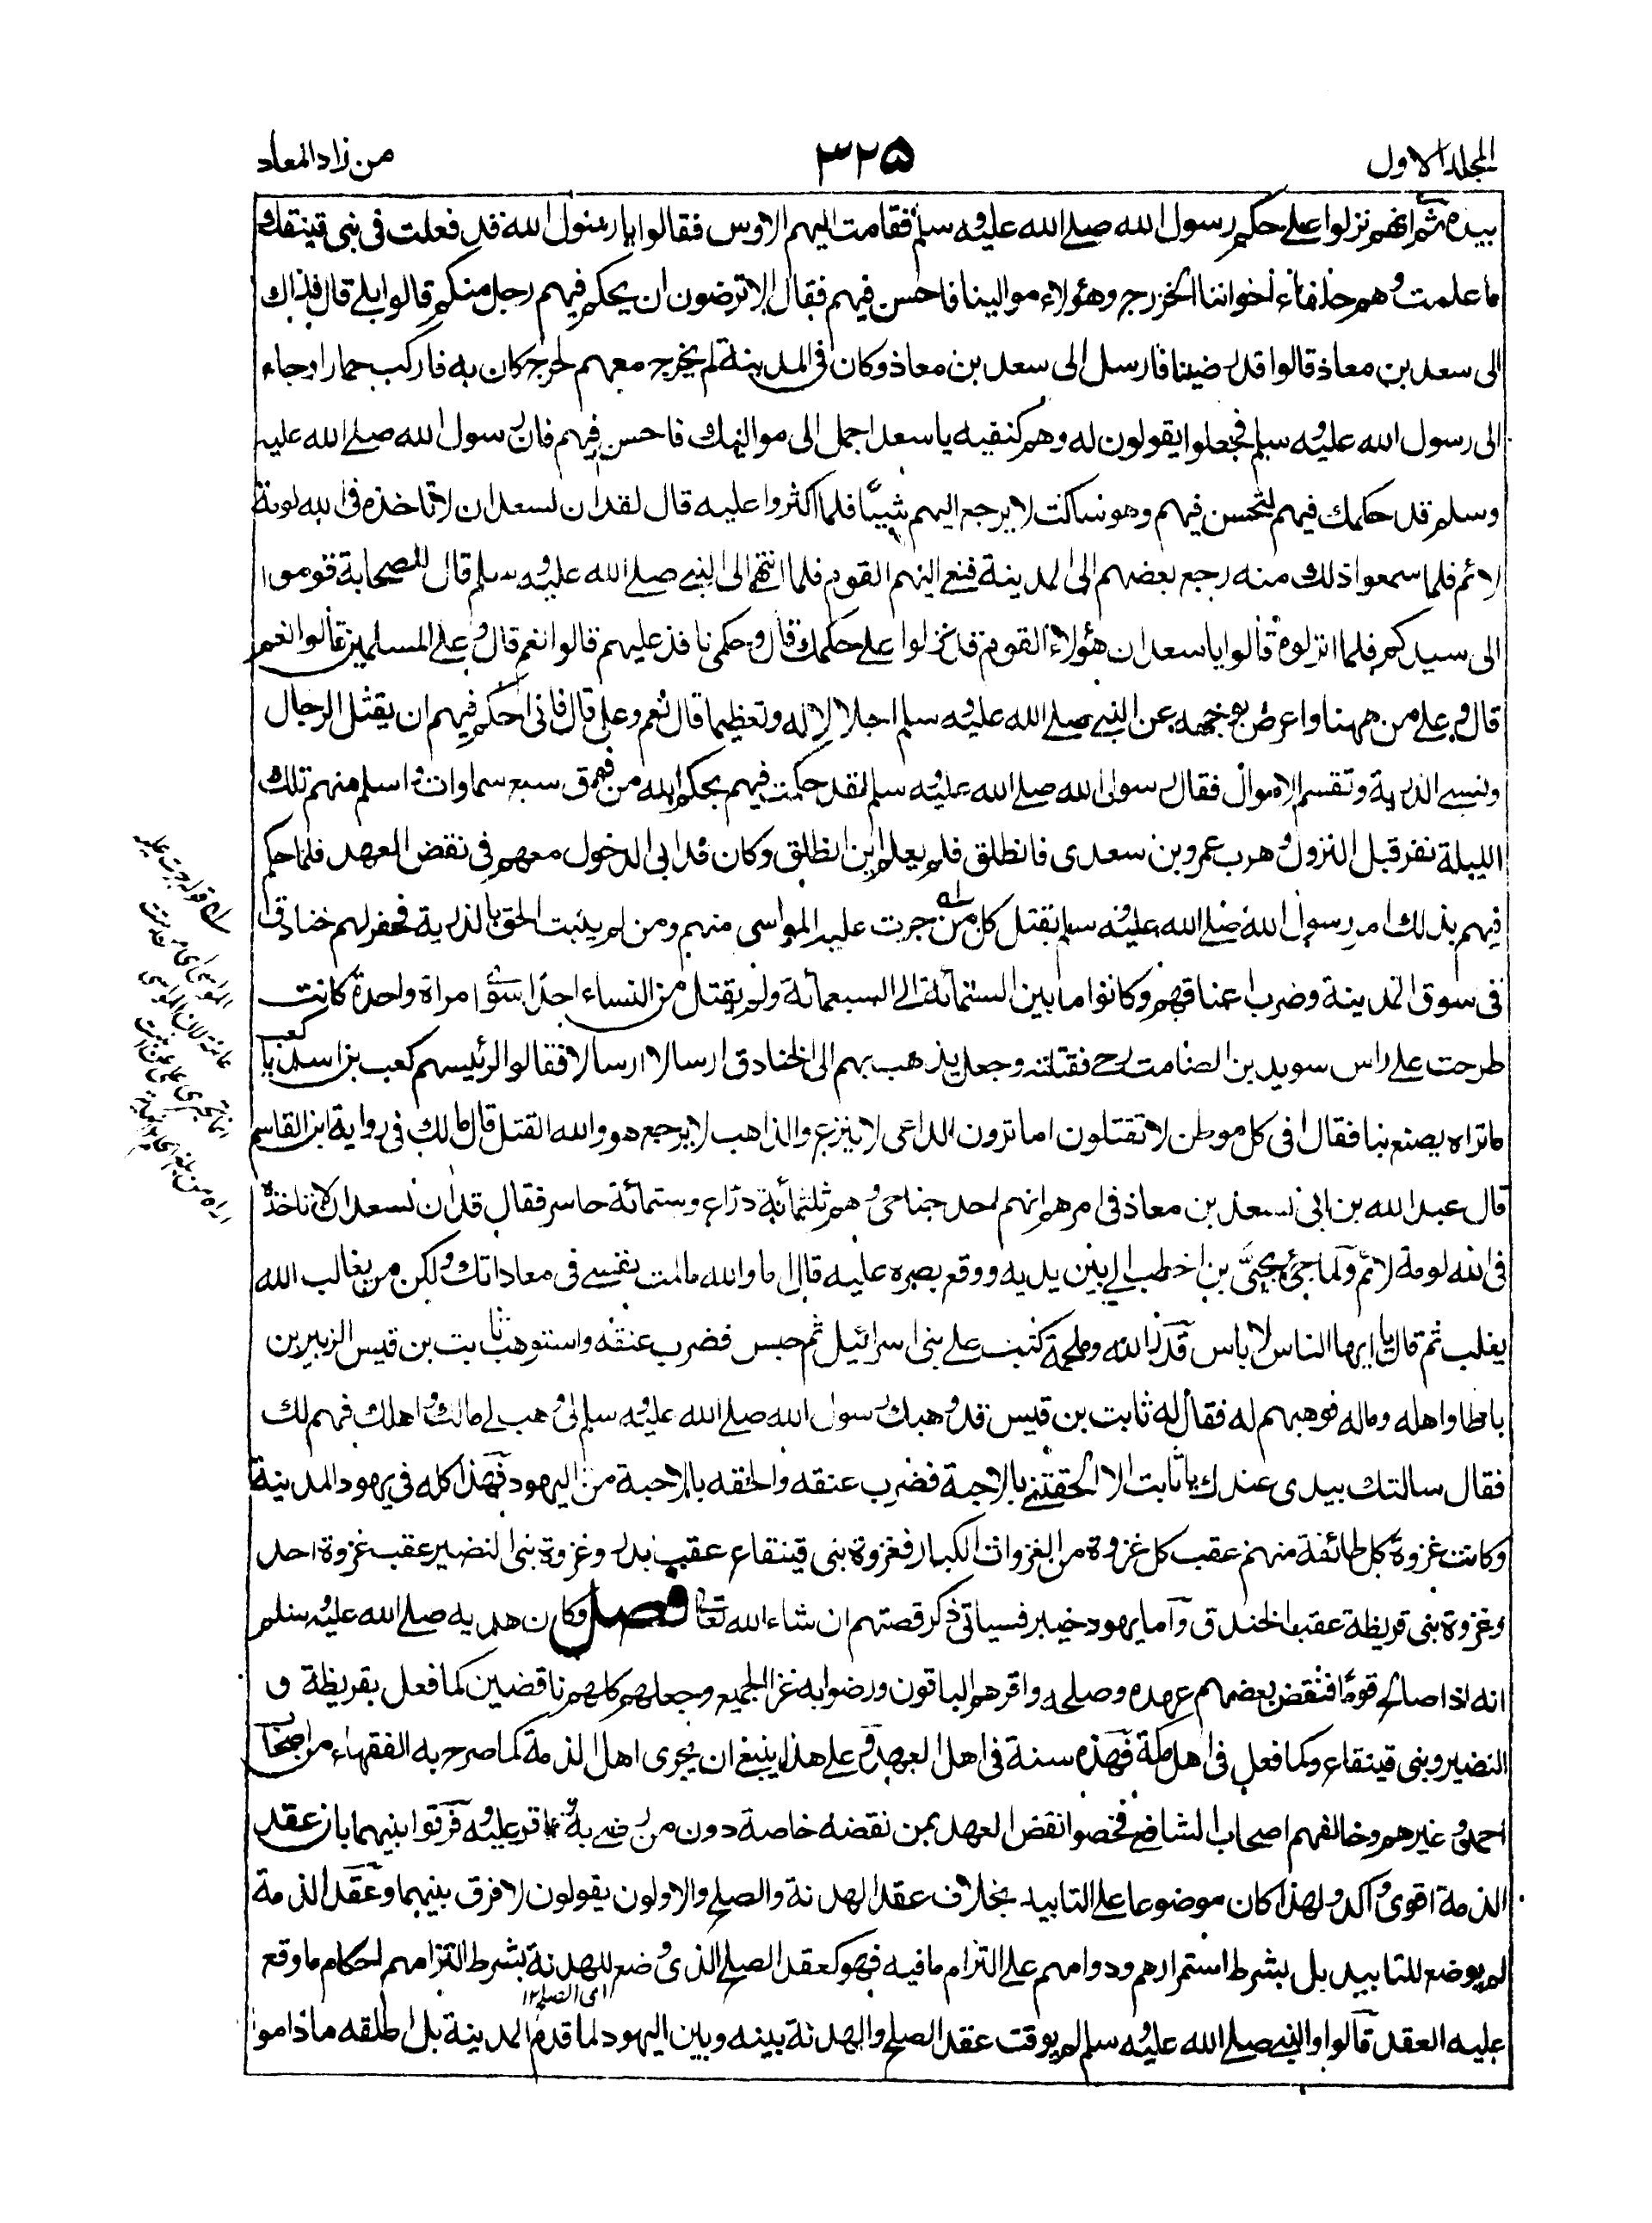 المجلد الاول
٣٢٥
من زاد المعاد
بيده ثم انهم نزلوا على حكم رسول الله صلى الله عليه وسلم فقامت اليهم الاوس فقالوا يا رسول الله قد فعلت في بني قينقاع
ما علمت وهم حلفاء اخواننا الخزرج وهؤلاء موالينا فاحسن فيهم فقال الا ترضون ان يحكم فيهم رجل منكم قالوا بلى قال فذاك
الى سعد بن معاذ قالوا قد رضينا فارسل الى سعد بن معاذ وكان في المدينة لم يخرج معهم لجرح كان به فاركب حمارا وجاء
الى رسول الله عليه وسلم فجعلوا يقولون له وهم كنفيه يا سعد اجمل الى مواليك فاحسن فيهم فان رسول الله صلى الله عليه
وسلم قد حكمك فيهم لتحسن فيهم وهو ساكت لا يرجع اليهم شيئا فلما اكثروا عليه قال لقد ان لسعد ان لا تاخذه في الله لومة
لائم فلما سمعوا ذلك منه رجع بعضهم الى المدينة فنعى اليهم القوم فلما انتهى الى النبي صلى الله عليه وسلم قال للصحابة قوموا
الى سيدكم فلما انزلوه قالوا يا سعد ان هؤلاء القوم قد نزلوا على حكمك قال وحكمي نافذ عليهم قالوا نعم قال وعلى المسلمين قالوا نعم
قال وعلى من ههنا واعرض بوجهه عن النبي صلى الله عليه وسلم اجلالا له وتعظيما قال نعم وعلي قال فاني احكم فيهم ان يقتل الرجال
وتسبى الذرية وتقسم الاموال فقال رسول الله صلى الله عليه وسلم لقد حكمت فيهم بحكم الله من فوق سبع سماوات واسلم منهم تلك
الليلة نفر قبل النزول وهرب عمرو بن سعدى فانطلق فلم يعلم اين انطلق وكان قد ابى الدخول معهم في نقض العهد فلما حكم
فيهم بذلك امر رسول الله صلى الله عليه وسلم بقتل كل من جرت عليه المواسي منهم ومن لم ينبت الحق بالذرية فحفر لهم خنادق
في سوق المدينة وضرب اعناقهم وكانوا ما بين الستمائة الى السبعمائة ولم يقتل من النساء احدا سوى امراة واحدة كانت
طرحت على راس سويد بن الصامت رحى فقتلته وجعل يذهب بهم الى الخنادق ارسالا ارسالا فقالوا لرئيسهم كعب بن اسد يا كعب
ما تراه يصنع بنا فقال افي كل موطن لا تعقلون اما ترون الداعي لا ينزع والذاهب لا يرجع هو والله القتل قال مالك في رواية ابن القاسم
قال عبد الله بن ابي لسعد بن معاذ في امرهم انهم احد جناحي وهم ثلثمائة دراع وستمائة حاسر فقال قد ان لسعد ان لا تاخذه
في الله لومة لائم ولما جئ بحيي بن اخطب الى بين يديه ووقع بصره عليه قال اما والله ما لمت نفسي في معاداتك ولكن من يغالب الله
يغلب ثم قال يا ايها الناس لا باس قدر الله وملحمة كتبت على بني اسرائيل ثم حبس فضرب عنقه واستوهب ثابت بن قيس الزبير بن
باطا واهله وماله فوهبهم له فقال له ثابت بن قيس قد وهبك رسول الله صلى الله عليه وسلم لي وهب لي مالك واهلك فهم لك
فقال سالتك بيدي عندك يا ثابت الا الحقتني بالاحبة فضرب عنقه والحقه بالاحبة من اليهود فهذا كله في يهود المدينة
وكانت غزوة كل طائفة منهم عقب كل غزوة من الغزوات الكبار فغزوة بني قينقاع عقب بدر وغزوة بني النضير عقب غزوة احد
وغزوة بني قريظة عقب الخندق وآما يهود خيبر فسياتي ذكر قصتهم ان شاء الله تعالى فصل وكان هديه صلى الله عليه وسلم
انه اذا صالح قوما فنقض بعضهم عهده وصلحه واقرهم الباقون ورضوا به غزا الجميع وجعلهم كلهم ناقضين كما فعل بقريظة و
النضير وبني قينقاع وكما فعل في اهل مكة فهذه سنة في اهل العهد وعلى هذا ينبغي ان يجرى اهل الذمة كما صرح به الفقهاء من اصحاب
احمد وغيرهم وخالفهم اصحاب الشافعي فخصوا نقض العهد بمن نقضه خاصة دون من رضي به واقر عليه وفرقوا بينهما بان عقد
الذمة اقوى وآكد ولهذا كان موضوعا على التابيد بخلاف عقد الهدنة والصلح والاولون يقولون لا فرق بينهما وعقد الذمة
لم يوضع للتابيد بل بشرط استمرارهم ودوامهم على التزام ما فيه فهو كعقد الصلح الذي وضع للهدنة بشرط التزامهم احكام ما وقع
اى الصلح ١٢
عليه العقد قالوا والنبي صلى الله عليه وسلم لم يوقت عقد الصلح والهدنة بينه وبين اليهود لما قدم المدينة بل اطلقه ما داموا